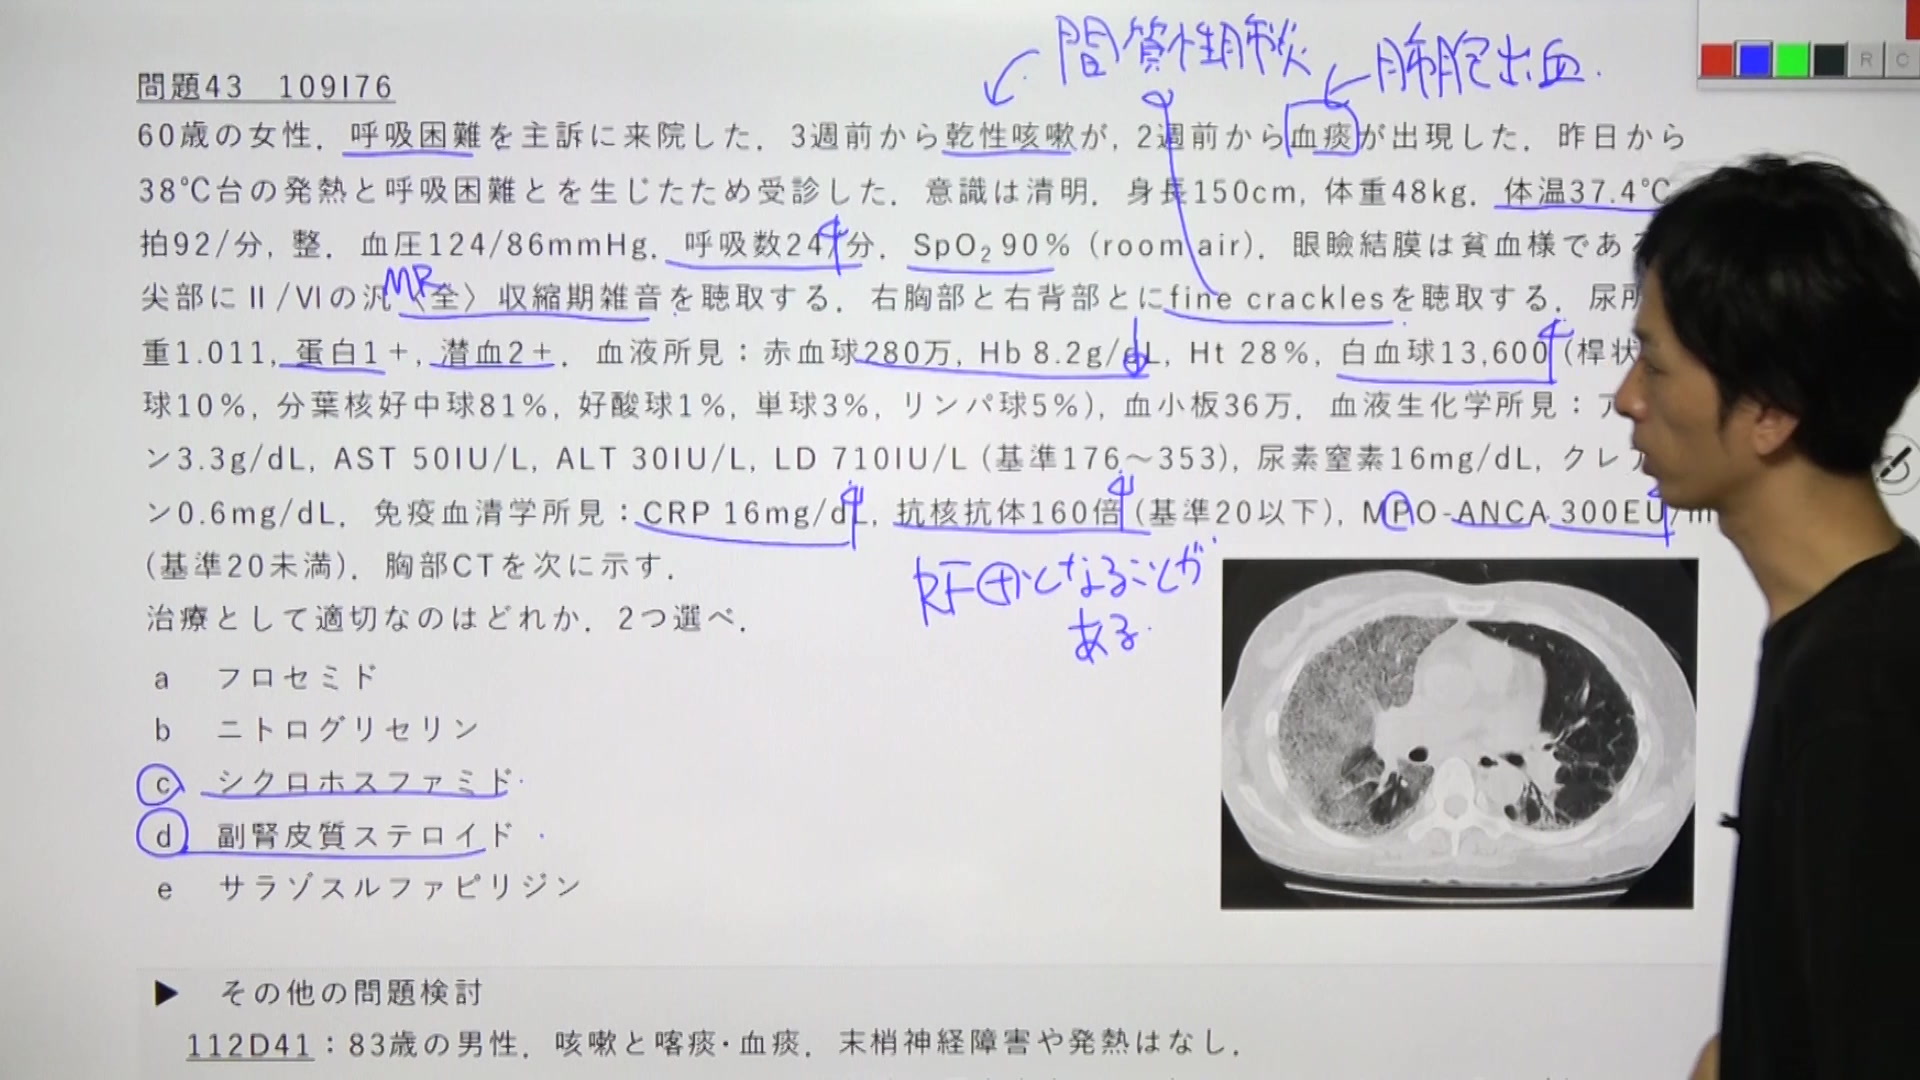 間質性肺炎
肺胞出血.
R C
問題43 109I76
60歳の女性．呼吸困難を主訴に来院した．3週前から乾性咳嗽が，2週前から血痰が出現した．昨日から
38℃台の発熱と呼吸困難とを生じたため受診した．意識は清明．身長150cm，体重48kg．体温37.4℃
拍92/分，整．血圧124/86mmHg．呼吸数24/分．SpO₂ 90％（room air）．眼瞼結膜は貧血様である
MR
尖部にⅡ/Ⅵの汎〈全〉収縮期雑音を聴取する．右胸部と右背部とにfine cracklesを聴取する．尿所
重1.011，蛋白1＋，潜血2＋．血液所見：赤血球280万，Hb 8.2g/dL，Ht 28％，白血球13,600（桿状
球10％，分葉核好中球81％，好酸球1％，単球3％，リンパ球5％），血小板36万．血液生化学所見：ア
ン3.3g/dL，AST 50IU/L，ALT 30IU/L，LD 710IU/L（基準176～353），尿素窒素16mg/dL，クレア
ン0.6mg/dL．免疫血清学所見：CRP 16mg/dL，抗核抗体160倍（基準20以下），MPO-ANCA 300EU/m
（基準20未満）．胸部CTを次に示す．
RF⊕となることが
ある.
治療として適切なのはどれか．2つ選べ．
a フロセミド
b ニトログリセリン
c シクロホスファミド
d 副腎皮質ステロイド
e サラゾスルファピリジン
▶ その他の問題検討
112D41：83歳の男性．咳嗽と喀痰・血痰．末梢神経障害や発熱はなし．